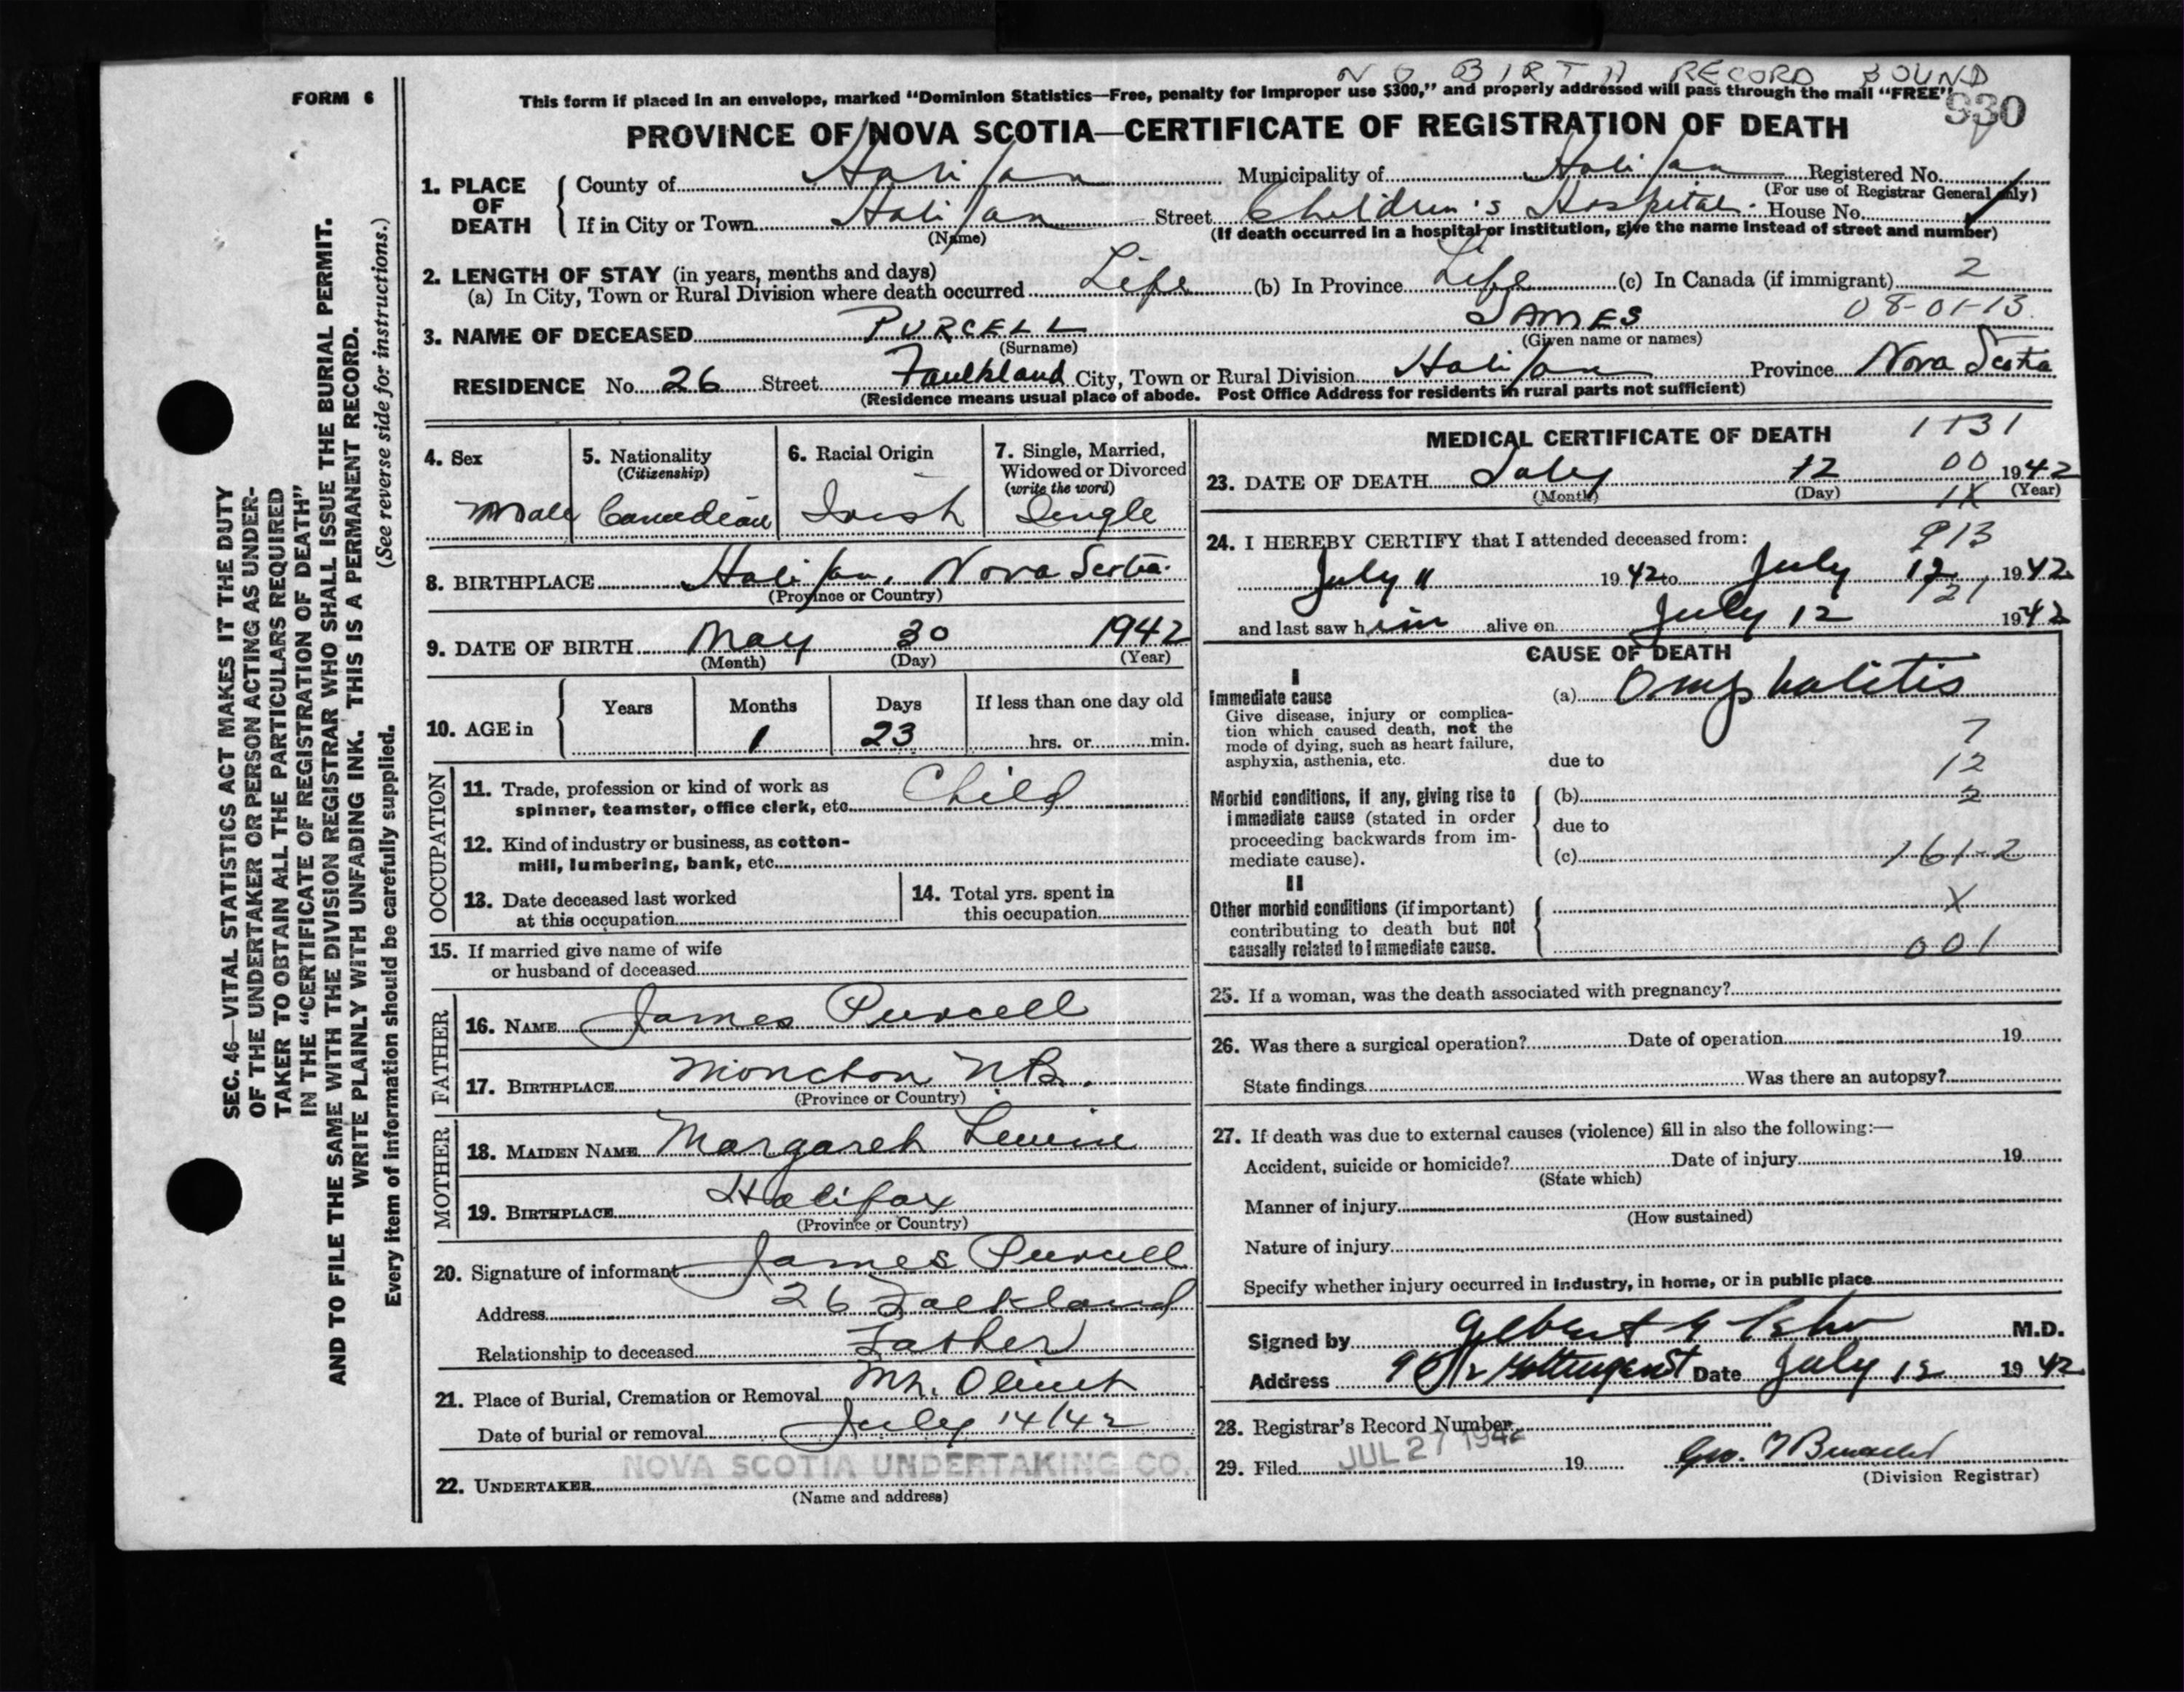 NO BIRTH RECORD FOUND
FORM 6
This form if placed in an envelope, marked "Dominion Statistics—Free, penalty for improper use $300," and properly addressed will pass through the mail "FREE"
930
PROVINCE OF NOVA SCOTIA—CERTIFICATE OF REGISTRATION OF DEATH
1. PLACE OF DEATH
County of Halifax Municipality of Halifax Registered No.
(For use of Registrar General only)
If in City or Town Halifax Street Children's Hospital. House No.
(Name) (If death occurred in a hospital or institution, give the name instead of street and number)
2. LENGTH OF STAY (in years, months and days)
(a) In City, Town or Rural Division where death occurred Life (b) In Province Life (c) In Canada (if immigrant) 2
08-01-13
3. NAME OF DECEASED PURCELL JAMES
(Surname) (Given name or names)
RESIDENCE No. 26 Street Faulkland City, Town or Rural Division Halifax Province Nova Scotia
(Residence means usual place of abode. Post Office Address for residents in rural parts not sufficient)
SEC. 46—VITAL STATISTICS ACT MAKES IT THE DUTY
OF THE UNDERTAKER OR PERSON ACTING AS UNDER-
TAKER TO OBTAIN ALL THE PARTICULARS REQUIRED
IN THE "CERTIFICATE OF REGISTRATION OF DEATH"
AND TO FILE THE SAME WITH THE DIVISION REGISTRAR WHO SHALL ISSUE THE BURIAL PERMIT.
WRITE PLAINLY WITH UNFADING INK. THIS IS A PERMANENT RECORD.
Every item of information should be carefully supplied. (See reverse side for instructions.)
4. Sex
Male
5. Nationality
(Citizenship)
Canadian
6. Racial Origin
Irish
7. Single, Married,
Widowed or Divorced
(write the word)
Single
8. BIRTHPLACE Halifax, Nova Scotia.
(Province or Country)
9. DATE OF BIRTH May 30 1942
(Month) (Day) (Year)
10. AGE in
Years Months Days If less than one day old
1 23 hrs. or min.
OCCUPATION
11. Trade, profession or kind of work as
spinner, teamster, office clerk, etc. Child
12. Kind of industry or business, as cotton-
mill, lumbering, bank, etc.
13. Date deceased last worked
at this occupation
14. Total yrs. spent in
this occupation
15. If married give name of wife
or husband of deceased
FATHER
16. NAME James Purcell
17. BIRTHPLACE Moncton N.B.
(Province or Country)
MOTHER
18. MAIDEN NAME Margaret
19. BIRTHPLACE Halifax
(Province or Country)
20. Signature of informant James Purcell
Address 26 Falkland
Relationship to deceased Father
21. Place of Burial, Cremation or Removal Mt. Olivet
Date of burial or removal July 14/42
NOVA SCOTIA UNDERTAKING CO.
22. UNDERTAKER
(Name and address)
MEDICAL CERTIFICATE OF DEATH 1131
23. DATE OF DEATH July 12 00 1942
(Month) (Day) 1X (Year)
24. I HEREBY CERTIFY that I attended deceased from: 913
July 11 1942 to July 12, 1942
121
and last saw him alive on July 12 1942
CAUSE OF DEATH
I
Immediate cause
Give disease, injury or complica-
tion which caused death, not the
mode of dying, such as heart failure,
asphyxia, asthenia, etc.
(a) Omphalitis
7
due to 12
Morbid conditions, if any, giving rise to
immediate cause (stated in order
proceeding backwards from im-
mediate cause).
(b) 2
due to
(c) 161-2
II
Other morbid conditions (if important)
contributing to death but not
causally related to immediate cause.
X
001
25. If a woman, was the death associated with pregnancy?
26. Was there a surgical operation? Date of operation 19
State findings Was there an autopsy?
27. If death was due to external causes (violence) fill in also the following:—
Accident, suicide or homicide? Date of injury 19
(State which)
Manner of injury
(How sustained)
Nature of injury
Specify whether injury occurred in industry, in home, or in public place
Signed by Gilbert M.D.
Address Date July 1942
28. Registrar's Record Number
29. Filed JUL 27 1942 19 Geo.
(Division Registrar)